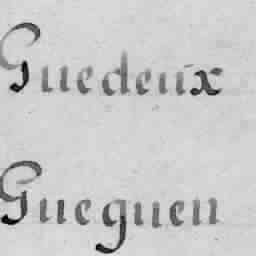 Guedeux
Gueguen